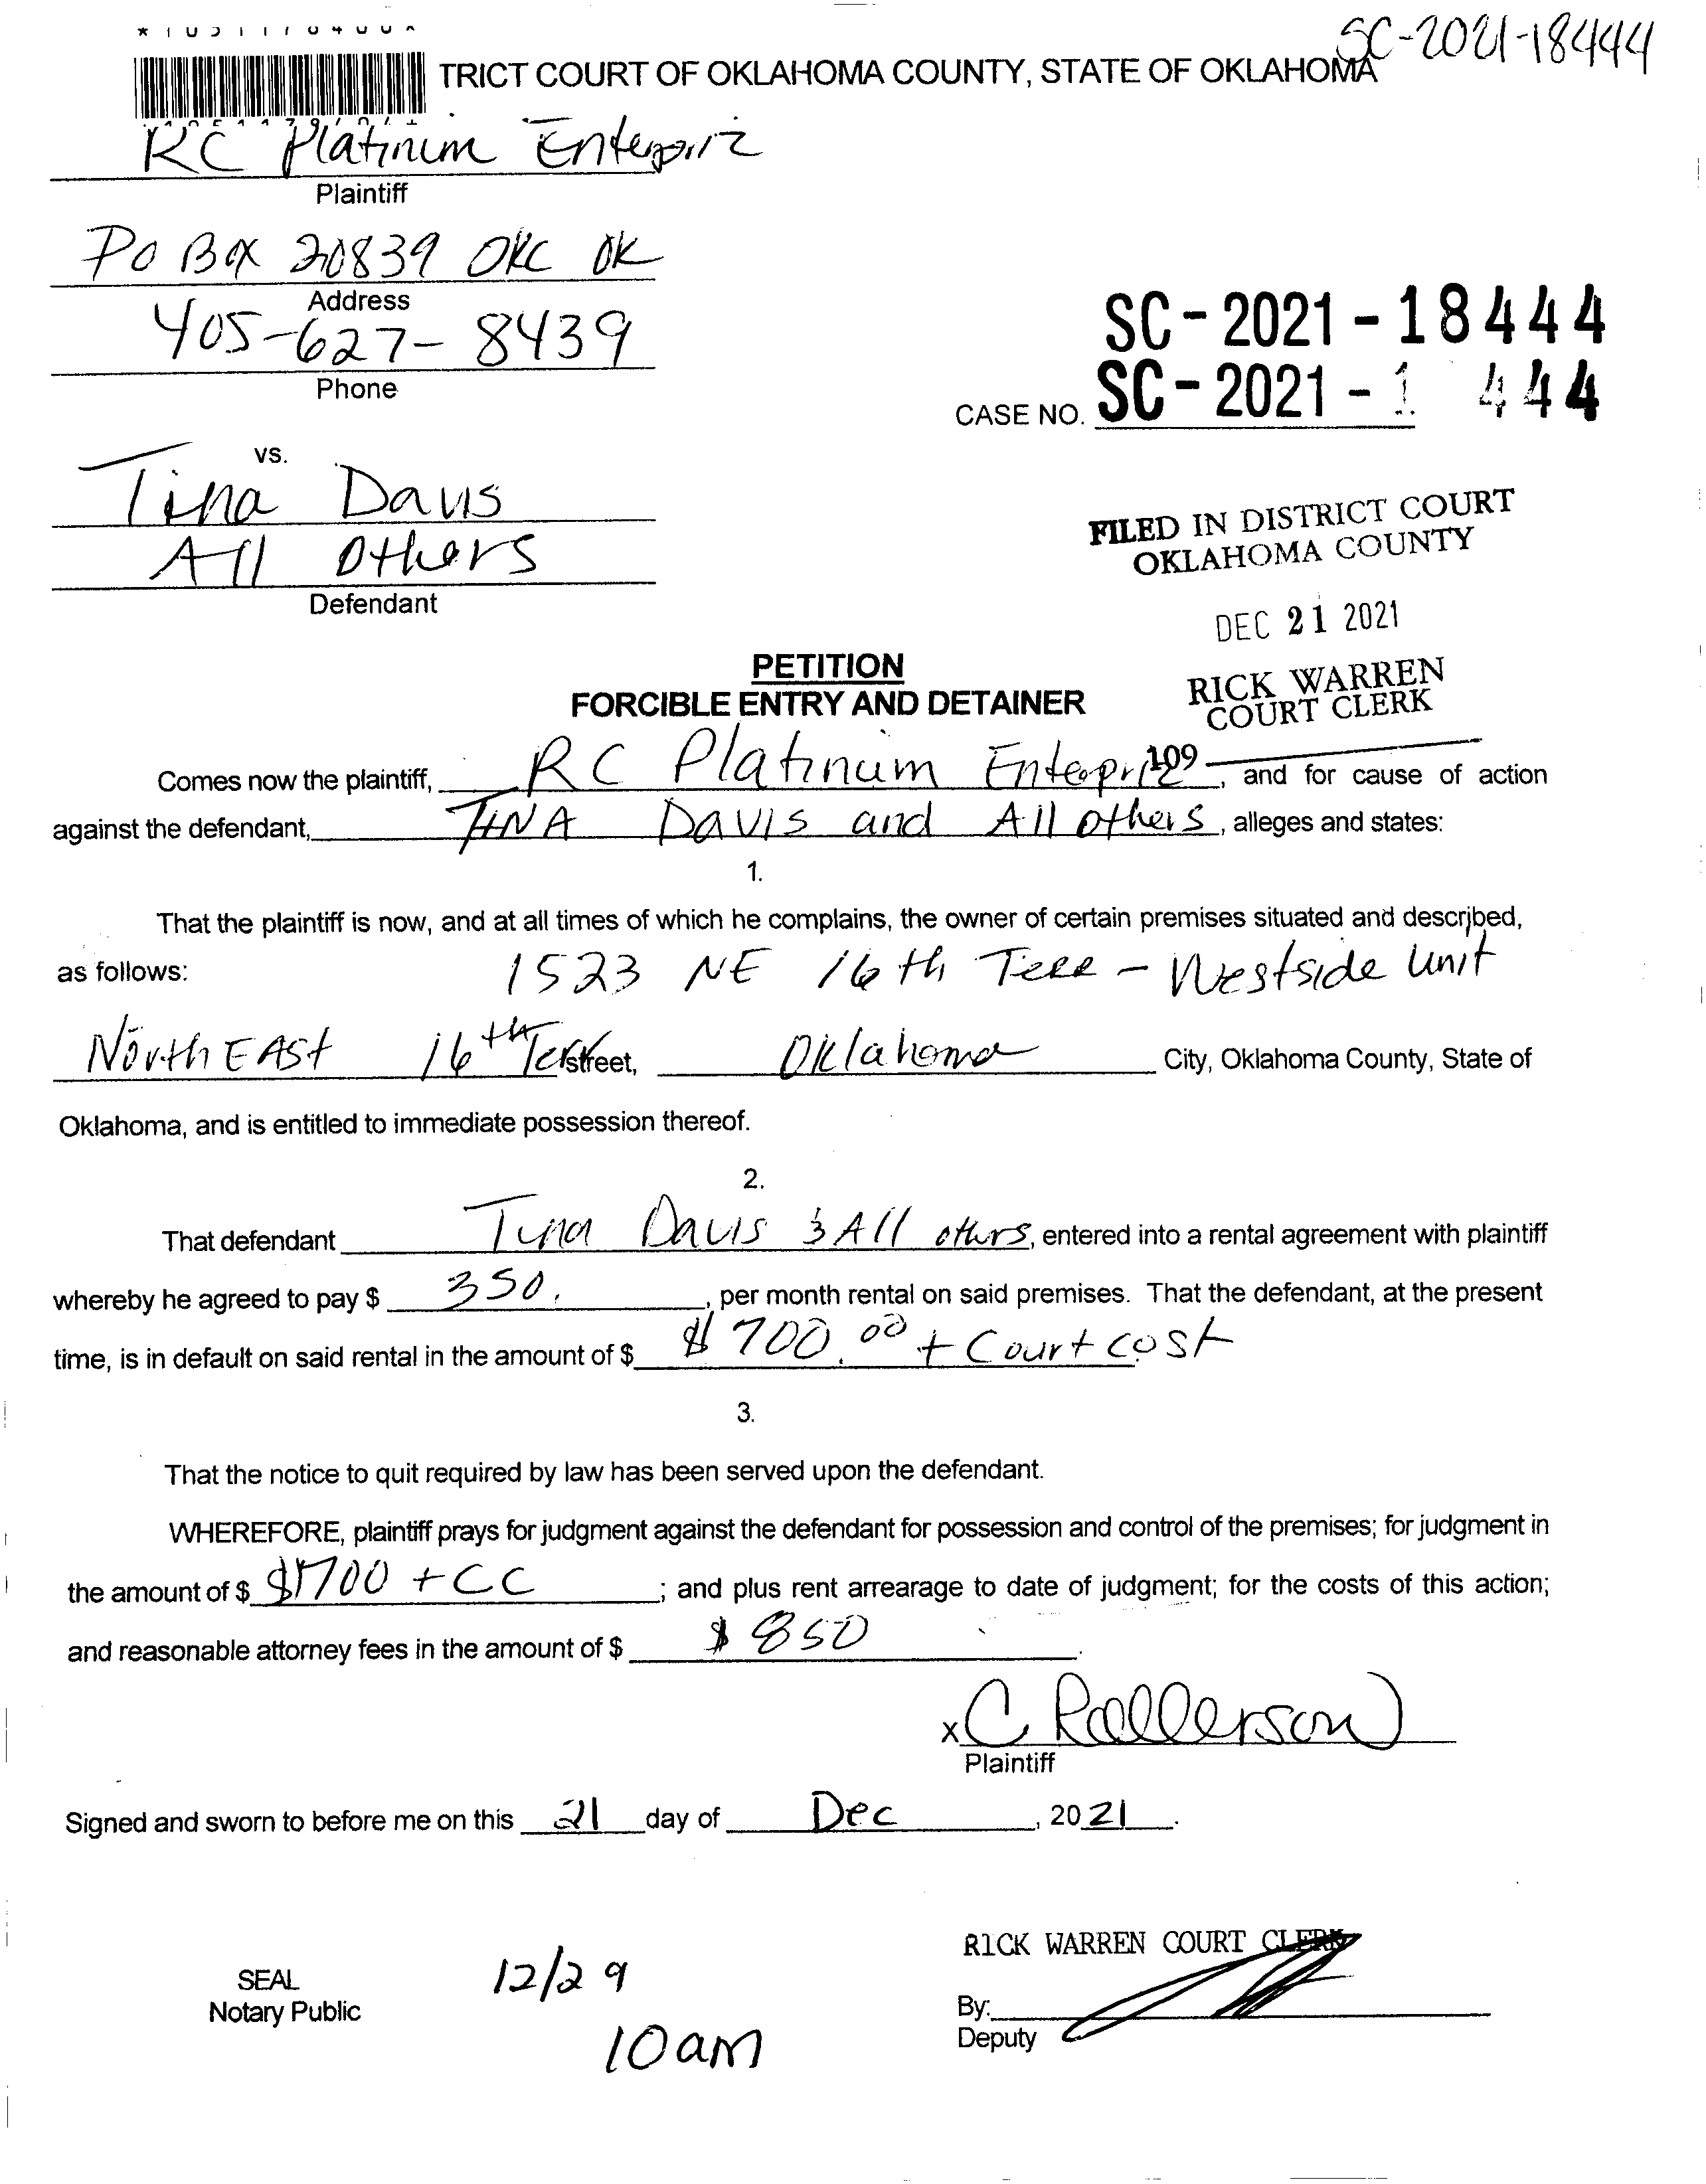 SC-2021-18444
TRICT COURT OF OKLAHOMA COUNTY, STATE OF OKLAHOMA
RC Platinum Enterpriz
Plaintiff
PO Box 20839 OKC OK
Address
405-627-8439
Phone
SC-2021-18444
CASE NO. SC-2021-1 444
vs.
Tina Davis
All Others
Defendant
FILED IN DISTRICT COURT
OKLAHOMA COUNTY
DEC 21 2021
RICK WARREN
COURT CLERK
109
PETITION
FORCIBLE ENTRY AND DETAINER
Comes now the plaintiff, RC Platinum Enterpriz, and for cause of action
against the defendant, TINA Davis and All others, alleges and states:
1.
That the plaintiff is now, and at all times of which he complains, the owner of certain premises situated and described,
as follows: 1523 NE 16th Terr - Westside Unit
North EAst 16th Terr street, Oklahoma City, Oklahoma County, State of
Oklahoma, and is entitled to immediate possession thereof.
2.
That defendant Tina Davis & All othrs, entered into a rental agreement with plaintiff
whereby he agreed to pay $ 350. , per month rental on said premises. That the defendant, at the present
time, is in default on said rental in the amount of $ $700.00 + Court cost
3.
That the notice to quit required by law has been served upon the defendant.
WHEREFORE, plaintiff prays for judgment against the defendant for possession and control of the premises; for judgment in
the amount of $ $700 + CC ; and plus rent arrearage to date of judgment; for the costs of this action;
and reasonable attorney fees in the amount of $ $850 .
x C Rallerson
Plaintiff
Signed and sworn to before me on this 21 day of Dec , 20 21 .
RICK WARREN COURT CLERK
SEAL
Notary Public
12/29
10am
By:
Deputy